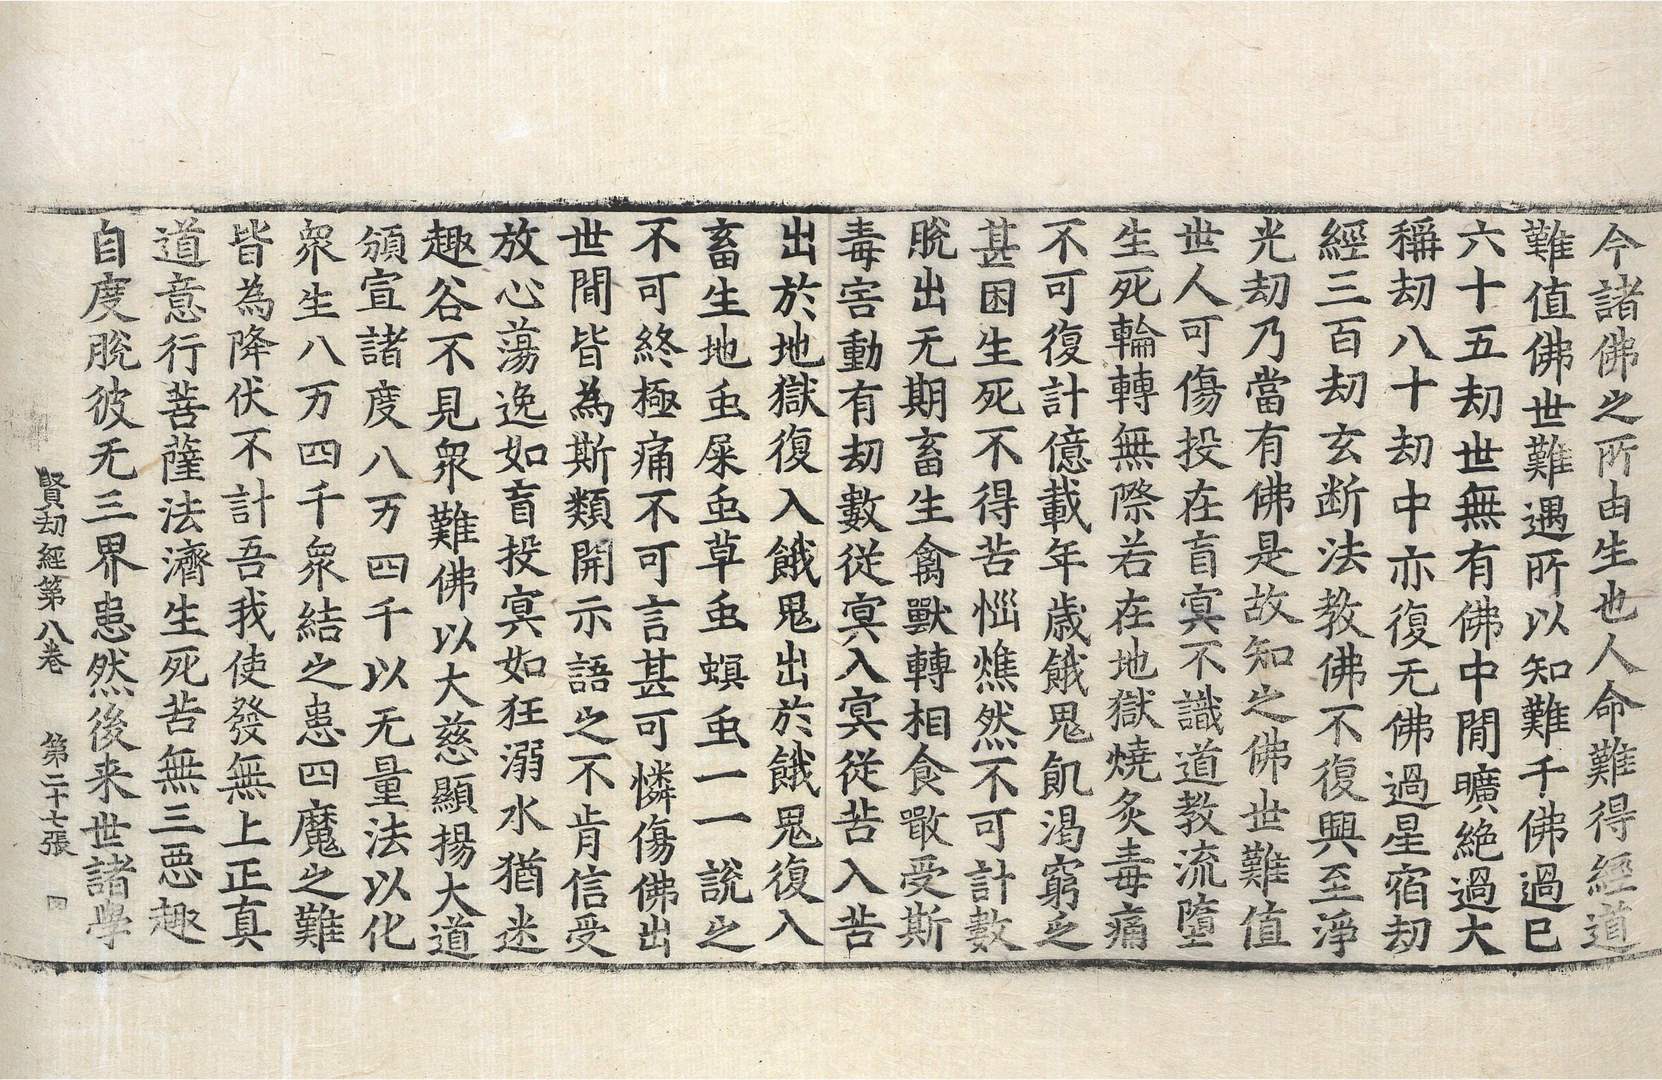 今諸佛之所由生也人命難得經道
難值佛世難遇所以知難千佛過已
六十五劫世無有佛中閒曠絶過大
稱劫八十劫中亦復无佛過星宿劫
經三百劫玄断法教佛不復興至淨
光劫乃當有佛是故知之佛世難值
世人可傷投在盲冥不識道教流墮
生死輪轉無際若在地獄燒炙毒痛
不可復計億載年歳餓鬼飢渴窮乏
甚困生死不得苦惱燋然不可計數
脫出无期畜生禽獸轉相食噉受斯
毒害動有劫數從冥入冥從苦入苦
出於地獄復入餓鬼出於餓鬼復入
畜生地虫屎虫草虫螟虫一一說之
不可終極痛不可言甚可憐傷佛出
世閒皆為斯類開示語之不肯信受
放心蕩逸如盲投冥如狂溺水猶迷
趣谷不見衆難佛以大慈顯揚大道
頒宣諸度八万四千以无量法以化
衆生八万四千衆結之患四魔之難
皆為降伏不計吾我使發無上正真
道意行菩薩法濟生死苦無三惡趣
自度脫彼无三界患然後来世諸學
賢劫經第八卷 第二十七張